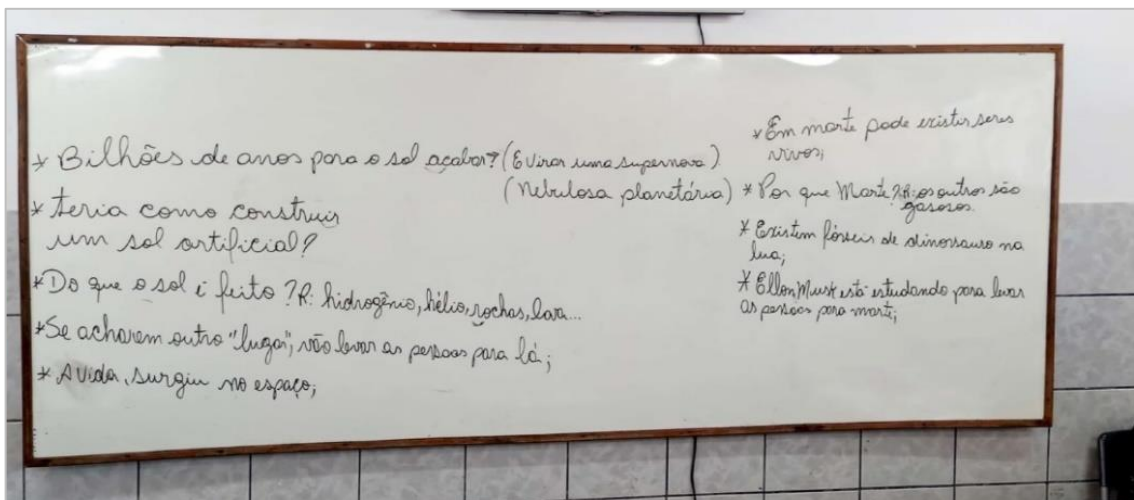 * Bilhões de anos para o sol acabar? (E virar uma supernova)
(Nebulosa planetária)
* teria como construir
um sol artificial?
* Do que o sol é feito? R: hidrogênio, hélio, rochas, lava...
* Se acharem outro "lugar", vão levar as pessoas para lá;
* A vida, surgiu no espaço;
* Em marte pode existir seres
vivos;
* Por que Marte? R: os outros são
gasosos.
* Existem fósseis de dinossauro na
lua;
* Ellon Musk está estudando para levar
as pessoas para marte;